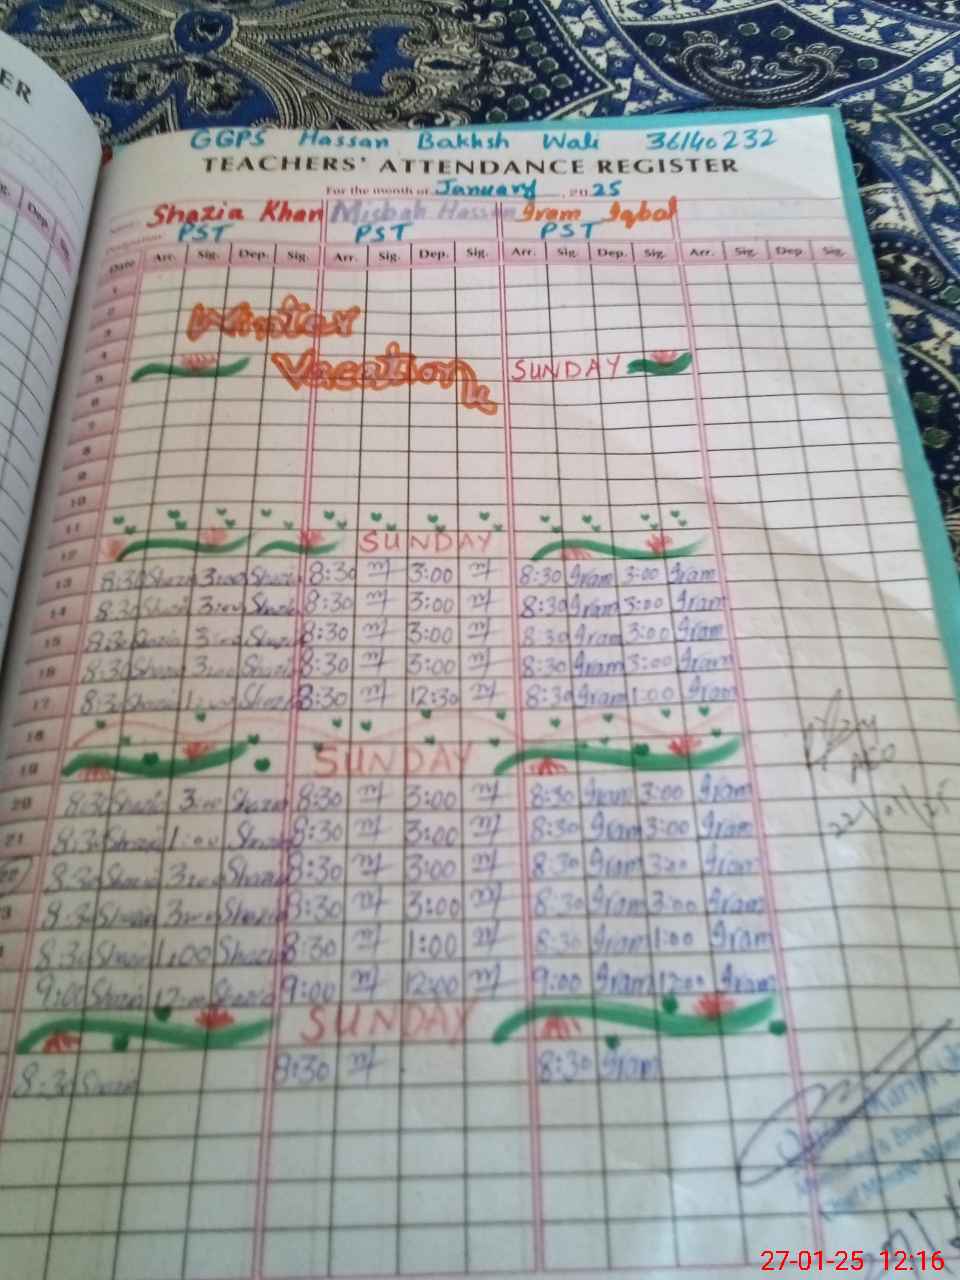 ER
GGPS Hassan Bakhsh Wali 36140232
TEACHERS' ATTENDANCE REGISTER
For the month of January, 2025
Name: Shazia Khan Misbah Hassan Iram Iqbal
Designation: PST PST PST
Date Arr. Sig. Dep. Sig. Arr. Sig. Dep. Sig. Arr. Sig. Dep. Sig. Arr. Sig. Dep. Sig.
1
2 Winter
3
4 Vacation
5 SUNDAY
6
7
8
9
10
11
12 SUNDAY
13 8:30 Shazia 3:00 Shazia 8:30 m 3:00 m 8:30 Iram 3:00 Iram
14 8:30 Shazia 3:00 Shazia 8:30 m 3:00 m 8:30 Iram 3:00 Iram
15 8:30 Shazia 3:00 Shazia 8:30 m 3:00 m 8:30 Iram 3:00 Iram
16 8:30 Shazia 3:00 Shazia 8:30 m 3:00 m 8:30 Iram 3:00 Iram
17 8:30 Shazia 1:00 Shazia 8:30 m 12:30 m 8:30 Iram 1:00 Iram
18
19 SUNDAY
AEO
22/01/25
20 8:30 Shazia 3:00 Shazia 8:30 m 3:00 m 8:30 Iram 3:00 Iram
21 8:30 Shazia 1:00 Shazia 8:30 m 3:00 m 8:30 Iram 3:00 Iram
8:30 Shazia 3:00 Shazia 8:30 m 3:00 m 8:30 Iram 3:00 Iram
8:30 Shazia 3:00 Shazia 8:30 m 3:00 m 8:30 Iram 3:00 Iram
8:30 Shazia 1:00 Shazia 8:30 m 1:00 m 8:30 Iram 1:00 Iram
9:00 Shazia 12:00 Shazia 9:00 m 12:00 m 9:00 Iram 12:00 Iram
SUNDAY
8:30 Shazia 8:30 m 8:30 Iram
27-01-25 12:16